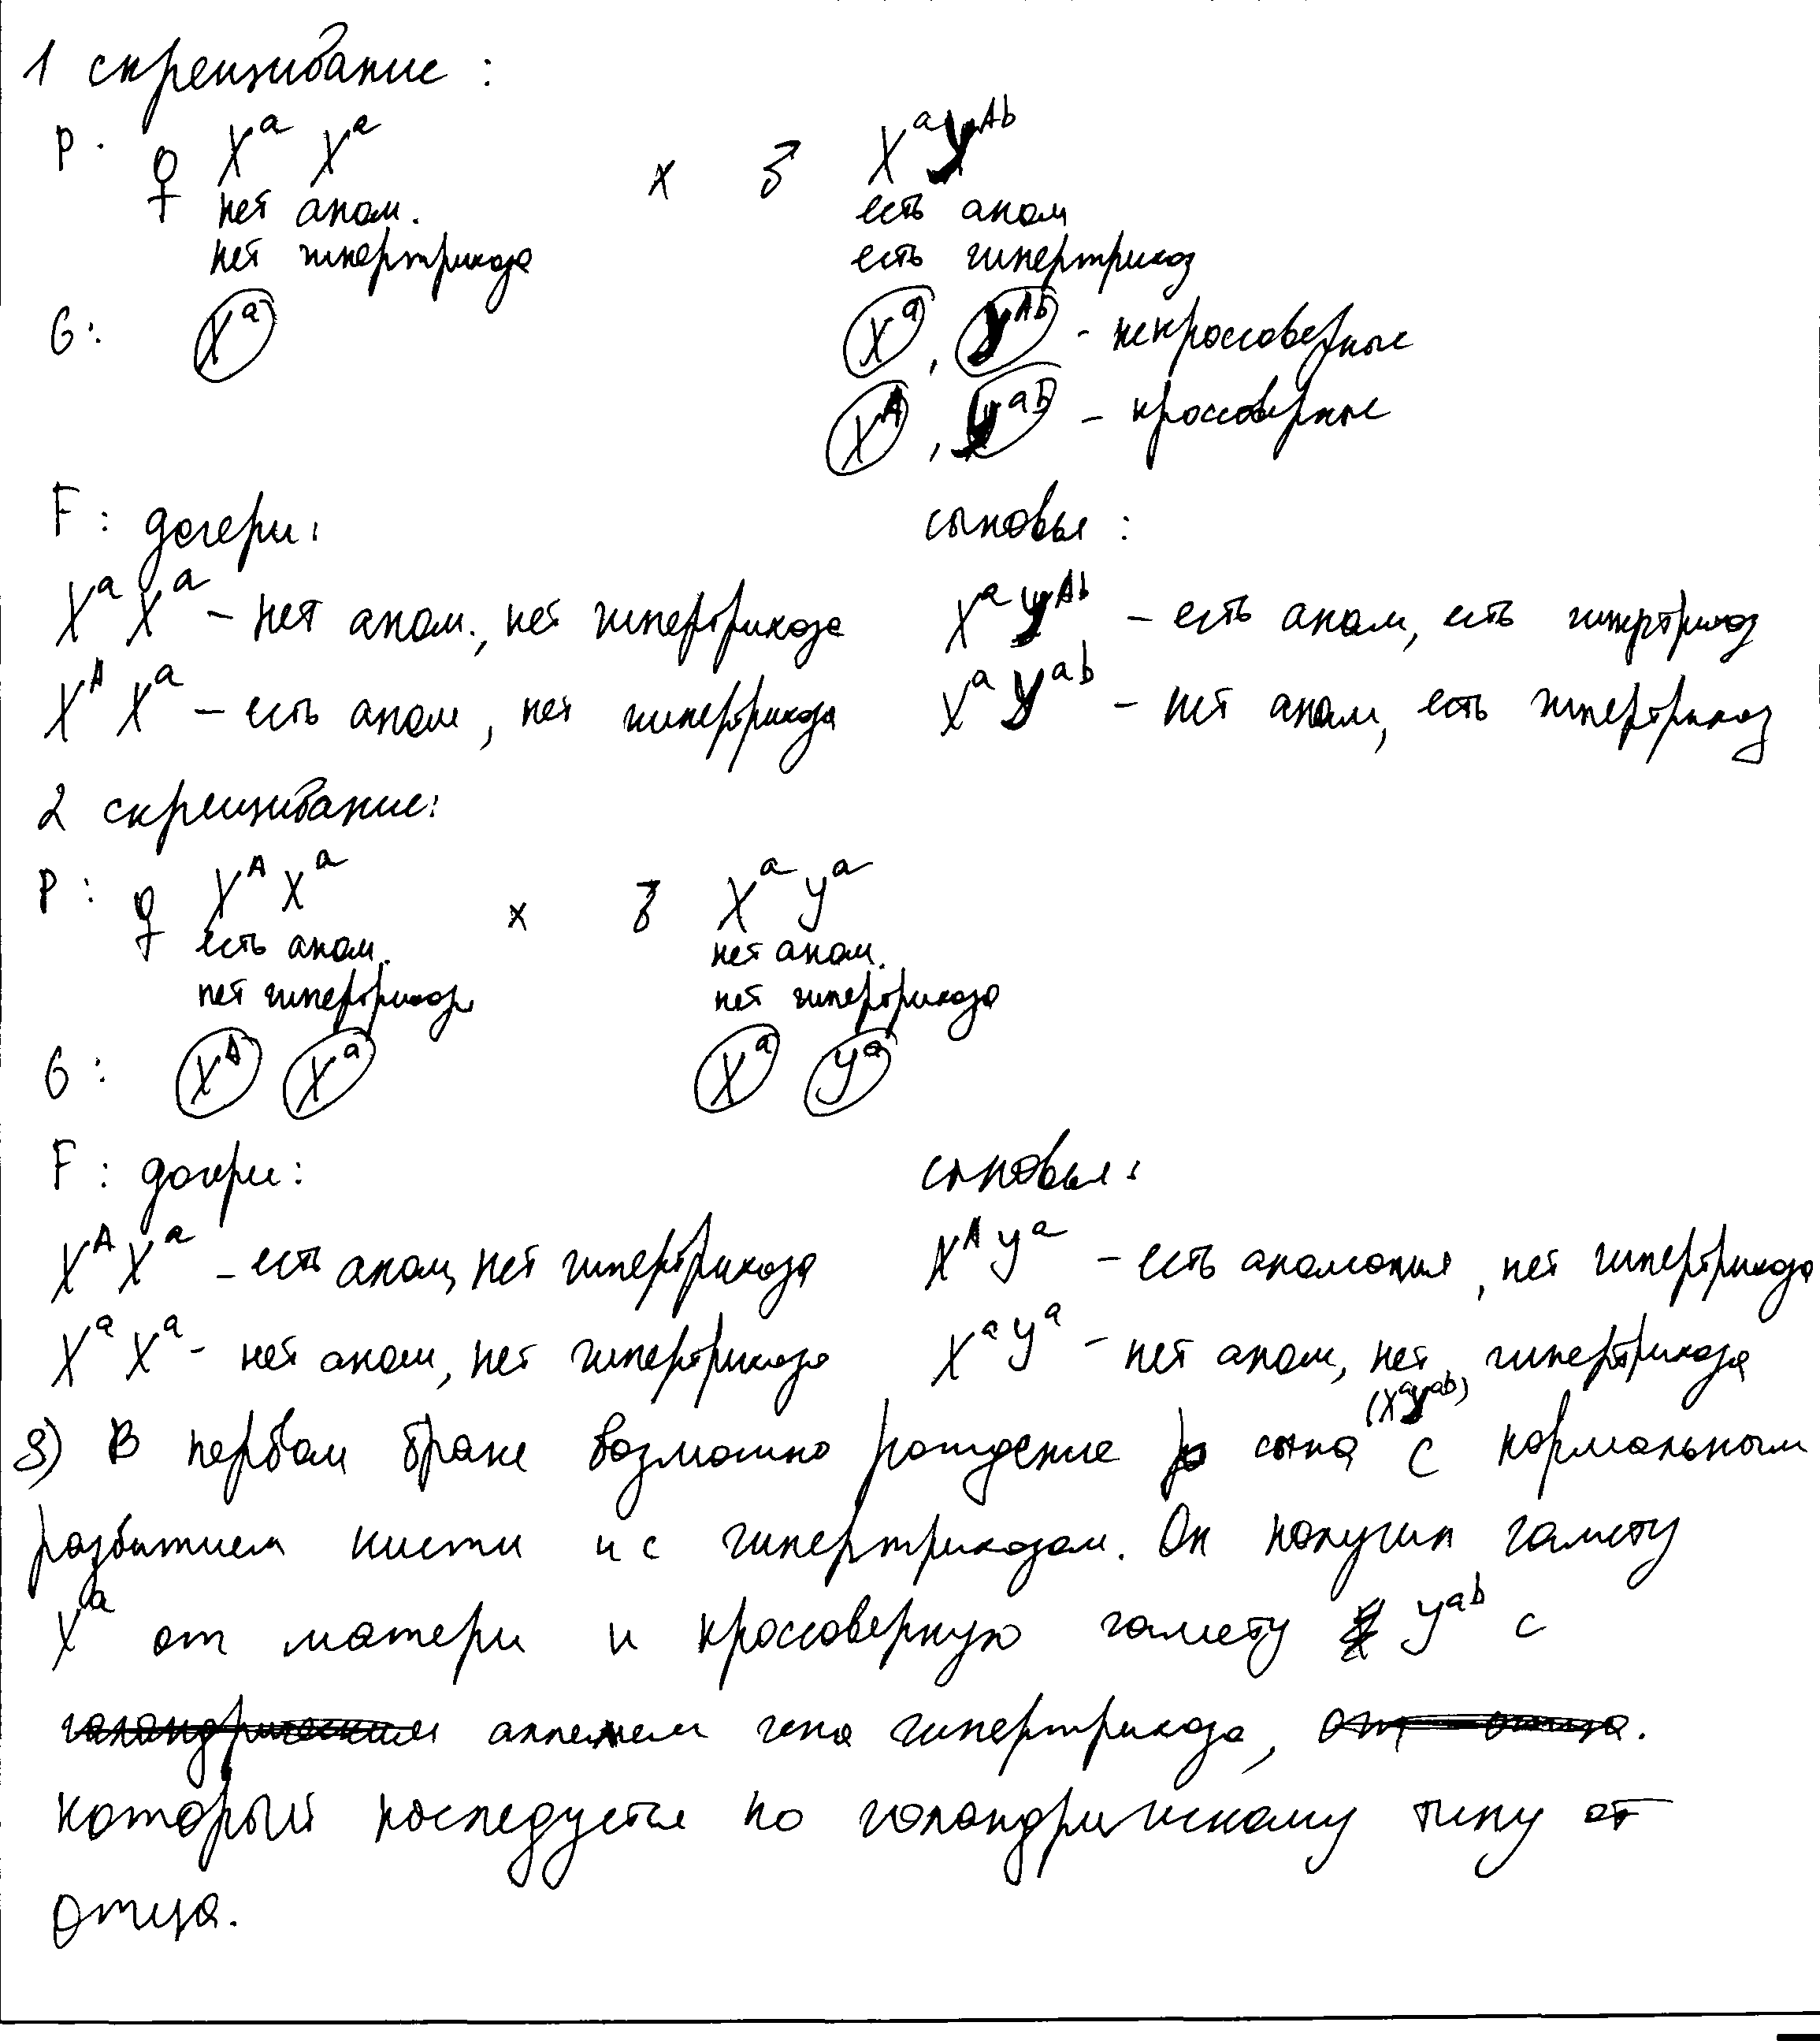 1 скрещивание :
P. ♀ Xᵃ Xᵃ x ♂ XᵃYᴬᵇ
нет аном. есть аном
нет гипертрихоза есть гипертрихоз
G: Xᵃ Xᵃ, Yᴬᵇ - некроссоверные
Xᴬ, Yᵃᵇ - кроссоверные
F : дочери: сыновья :
Xᵃ Xᵃ - нет аном., нет гипертрихоза XᵃYᴬᵇ - есть аном, есть гипертрихоз
Xᴬ Xᵃ - есть аном, нет гипертрихоза XᵃYᵃᵇ - нет аном, есть гипертрихоз
2 скрещивание:
P : ♀ Xᴬ Xᵃ x ♂ Xᵃ Yᵃ
есть аном. нет аном.
нет гипертрихоза нет гипертрихоза
G : Xᴬ Xᵃ Xᵃ Yᵃ
F : дочери: сыновья:
Xᴬ Xᵃ - есть аном, нет гипертрихоза XᴬYᵃ - есть аномалия, нет гипертрихоза
Xᵃ Xᵃ - нет аном, нет гипертрихоза XᵃYᵃ - нет аном, нет гипертрихоза
3) В первом браке возможно рождение сына (XᵃYᵃᵇ) с нормальным
развитием кисти и с гипертрихозом. Он получил гамету
Xᵃ от матери и кроссоверную гамету Yᵃᵇ с
аллелем гена гипертрихоза,
который наследуется по голандрическому типу от
отца.